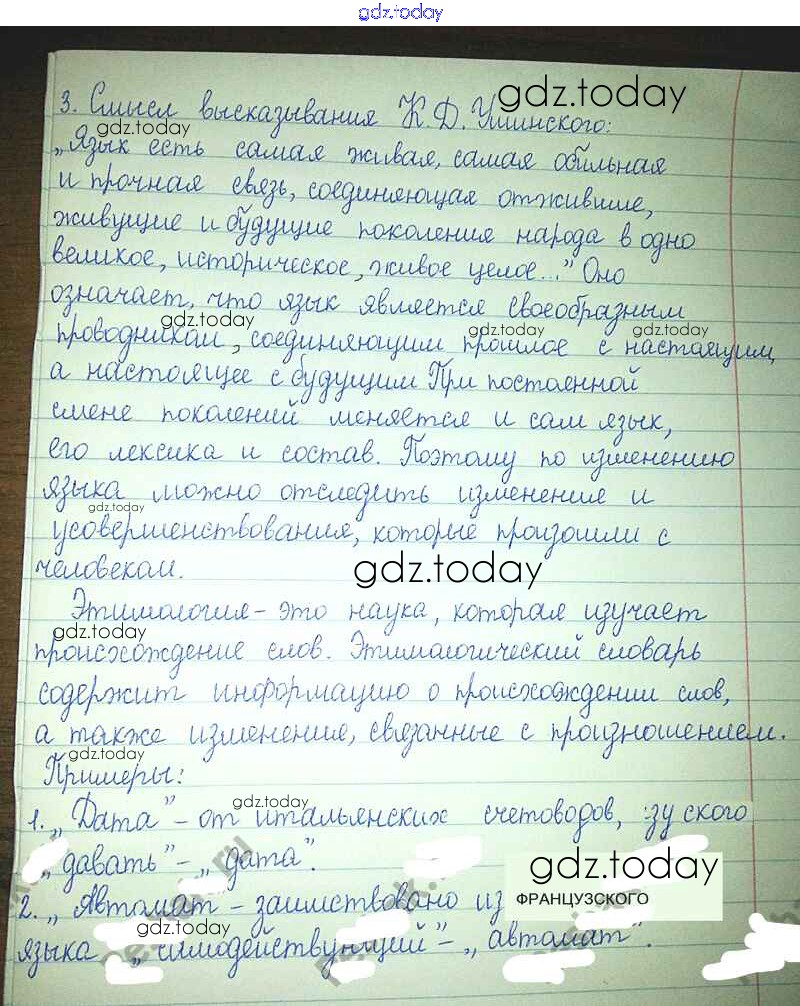 gdz.today
3. Смысл высказывания К.Д. Ушинского:
gdz.today
gdz.today
„Язык есть самая живая, самая обильная
и прочная связь, соединяющая отжившие,
живущие и будущие поколения народа в одно
великое, историческое, живое целое..." Оно
означает, что язык является своеобразным
gdz.today gdz.today gdz.today
проводником, соединяющим прошлое с настоящим,
а настоящее с будущим При постоянной
смене поколений меняется и сам язык,
его лексика и состав. Поэтому по изменению
языка можно отследить изменения и
gdz.today
усовершенствования, которые произошли с
человеком.
gdz.today
Этимология – это наука, которая изучает
gdz.today
происхождение слов. Этимологический словарь
содержит информацию о происхождении слов,
а также изменения, связанные с произношением.
gdz.today
Примеры:
gdz.today
1. „Дата" – от итальянских счетоводов, ского
„давать" – „дата".
gdz.today
2. „Автомат – заимствовано из ФРАНЦУЗСКОГО
gdz.today
языка „ - „автомат".